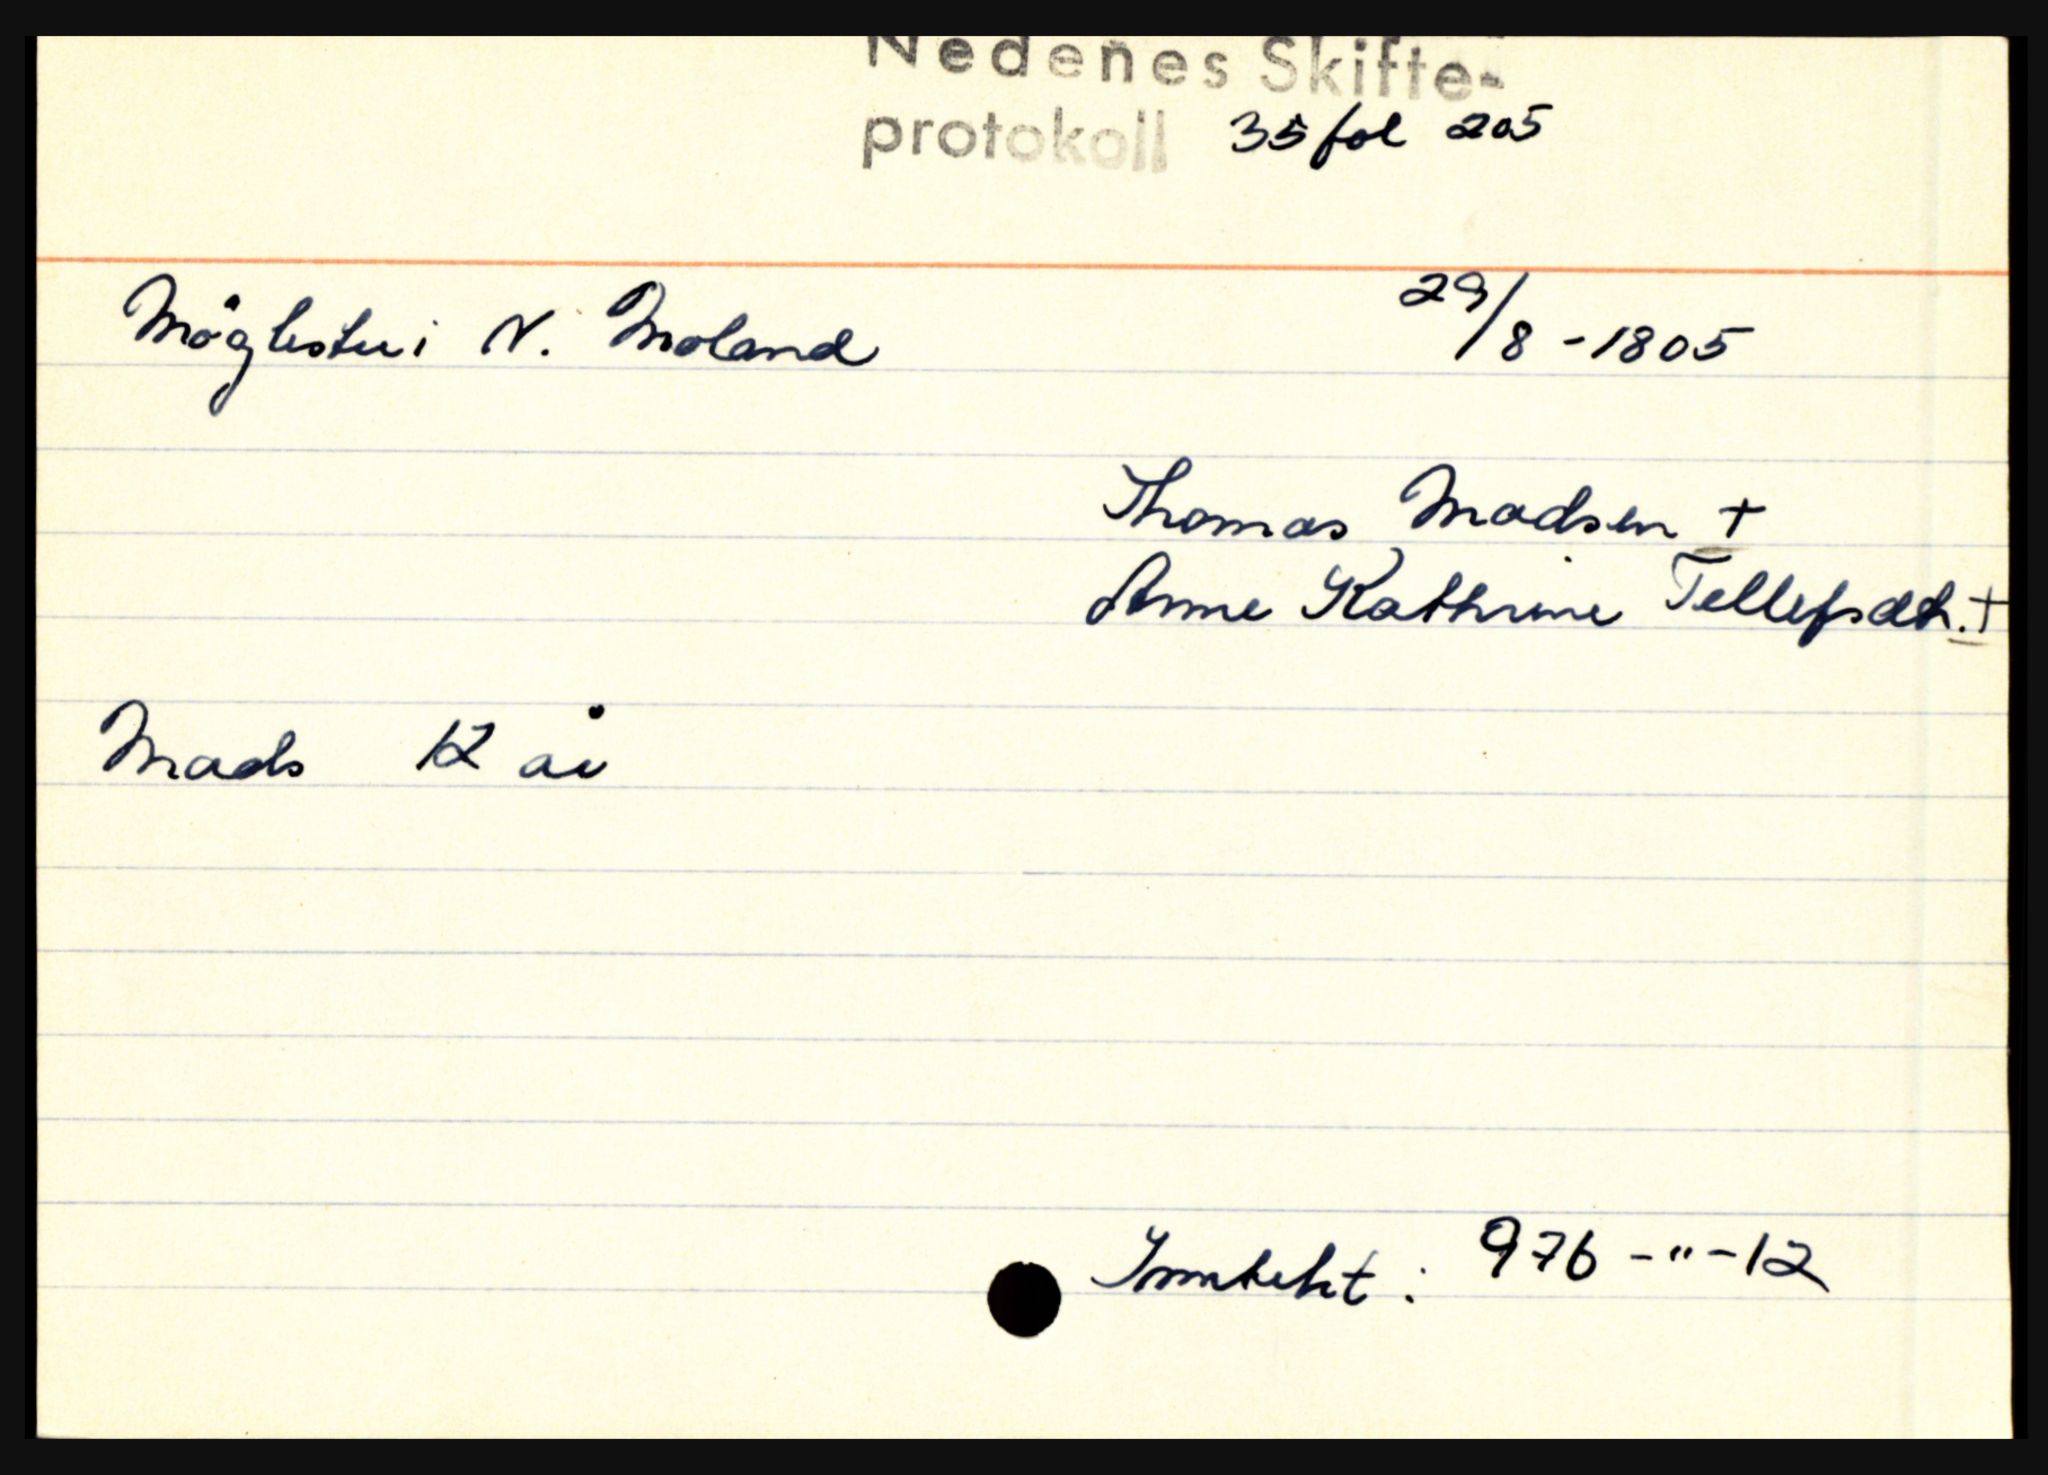 Nedenes Skifte-
protokoll 35 fol 205
Möglestu i V. Moland 29/8 - 1805
Thomas Madsen +
Anne Kathrine Tellefsdtr. +
Mads 12 år
Inntekt: 976 - " - 12